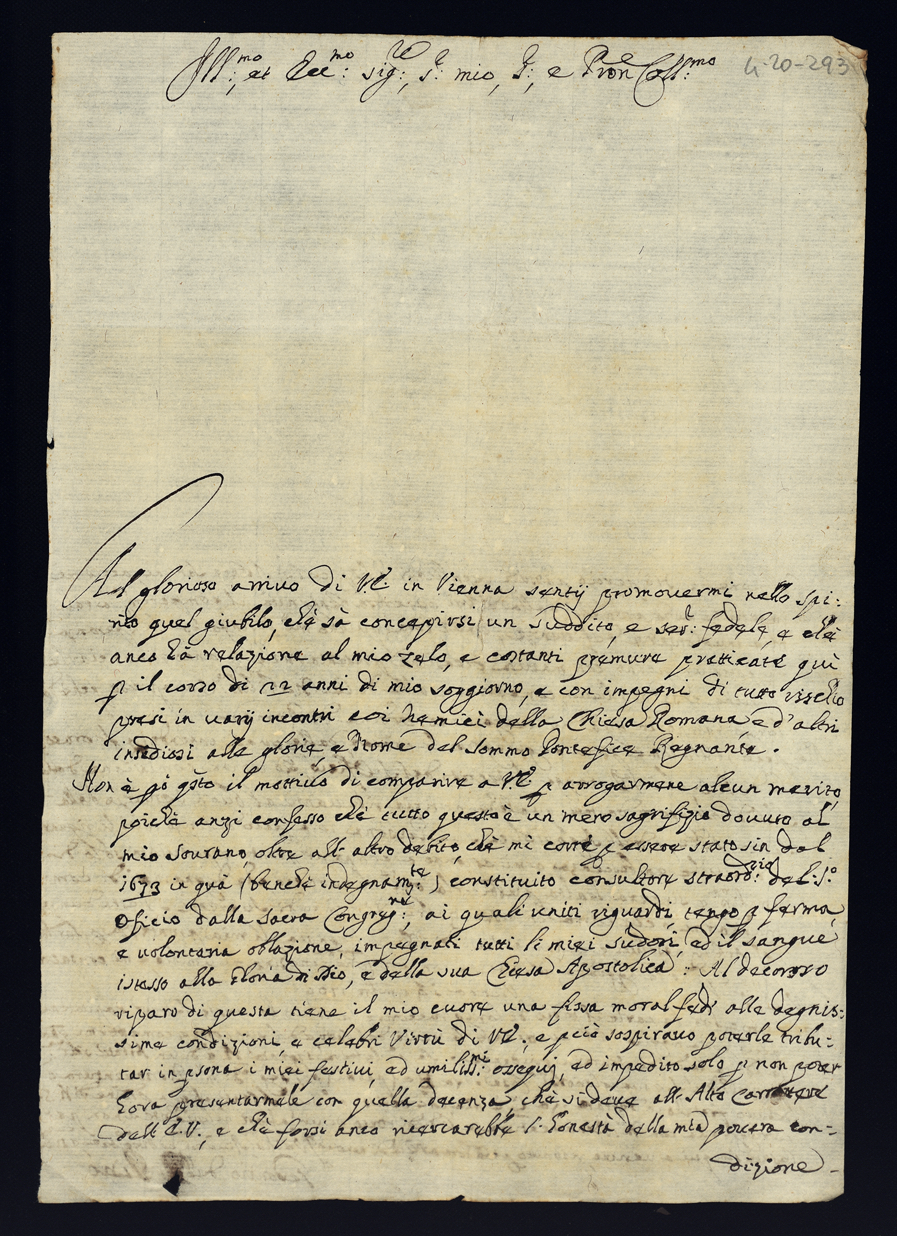 Ill:mo et Ecc:mo sig:re, s:r mio, S:, e Pron Coll:mo
4-20-293
Al glorioso arriuo di V.E. in Vienna sentij promouermi nello spi:
rito quel giubilo, chè sà concepirsi un Suddito, e ser:r fedele, e chè
anco hà relazione al mio zelo, e costanti premure pratticate quì
p il corso di 22 anni di mio soggiorno, e con impegni di tutto rischio
presi in uarij incontri coi Nemici della Chiesa Romana e d'altri
insidiosi alle glorie, e Nome del Sommo Pontefice Regnante.
Non è pò q̃sto il mottiuo di comparire a V.E. p arrogarmene alcun merito,
poichè anzi confesso chè tutto questo è un mero sagrifizio douuto al
mio Sourano, oltre all' altro debito, chè mi corre p essere stato sin dal
1673 in quà (benchè indegnam:te) constituito consultore straord:rio del S:o
Oficio dalla Sacra Congreg:ne, ai quali uniti riguardi, tengo p ferma,
e volontaria oblazione, impegnati tutti li miei Sudori, ed il sangue
istesso alla Gloria di Dio, e della sua Chiesa Apostolica: Al decoro
riparo di questa tiene il mio cuore una fissa moral fede alle degnis:
sime condizioni, e celebri Virtù di V.E., e pciò sospirauo poterle tribu-
tar in psona i miei festiui, ed umiliss:mi ossequij, ed impedito solo p non poter
hora presentarmele con quella decenza chè si deue all' Alto Carrattere
dell' E.V., e chè forsi anco ricercarebbe l' honestà della mia pouera con-
dizione-